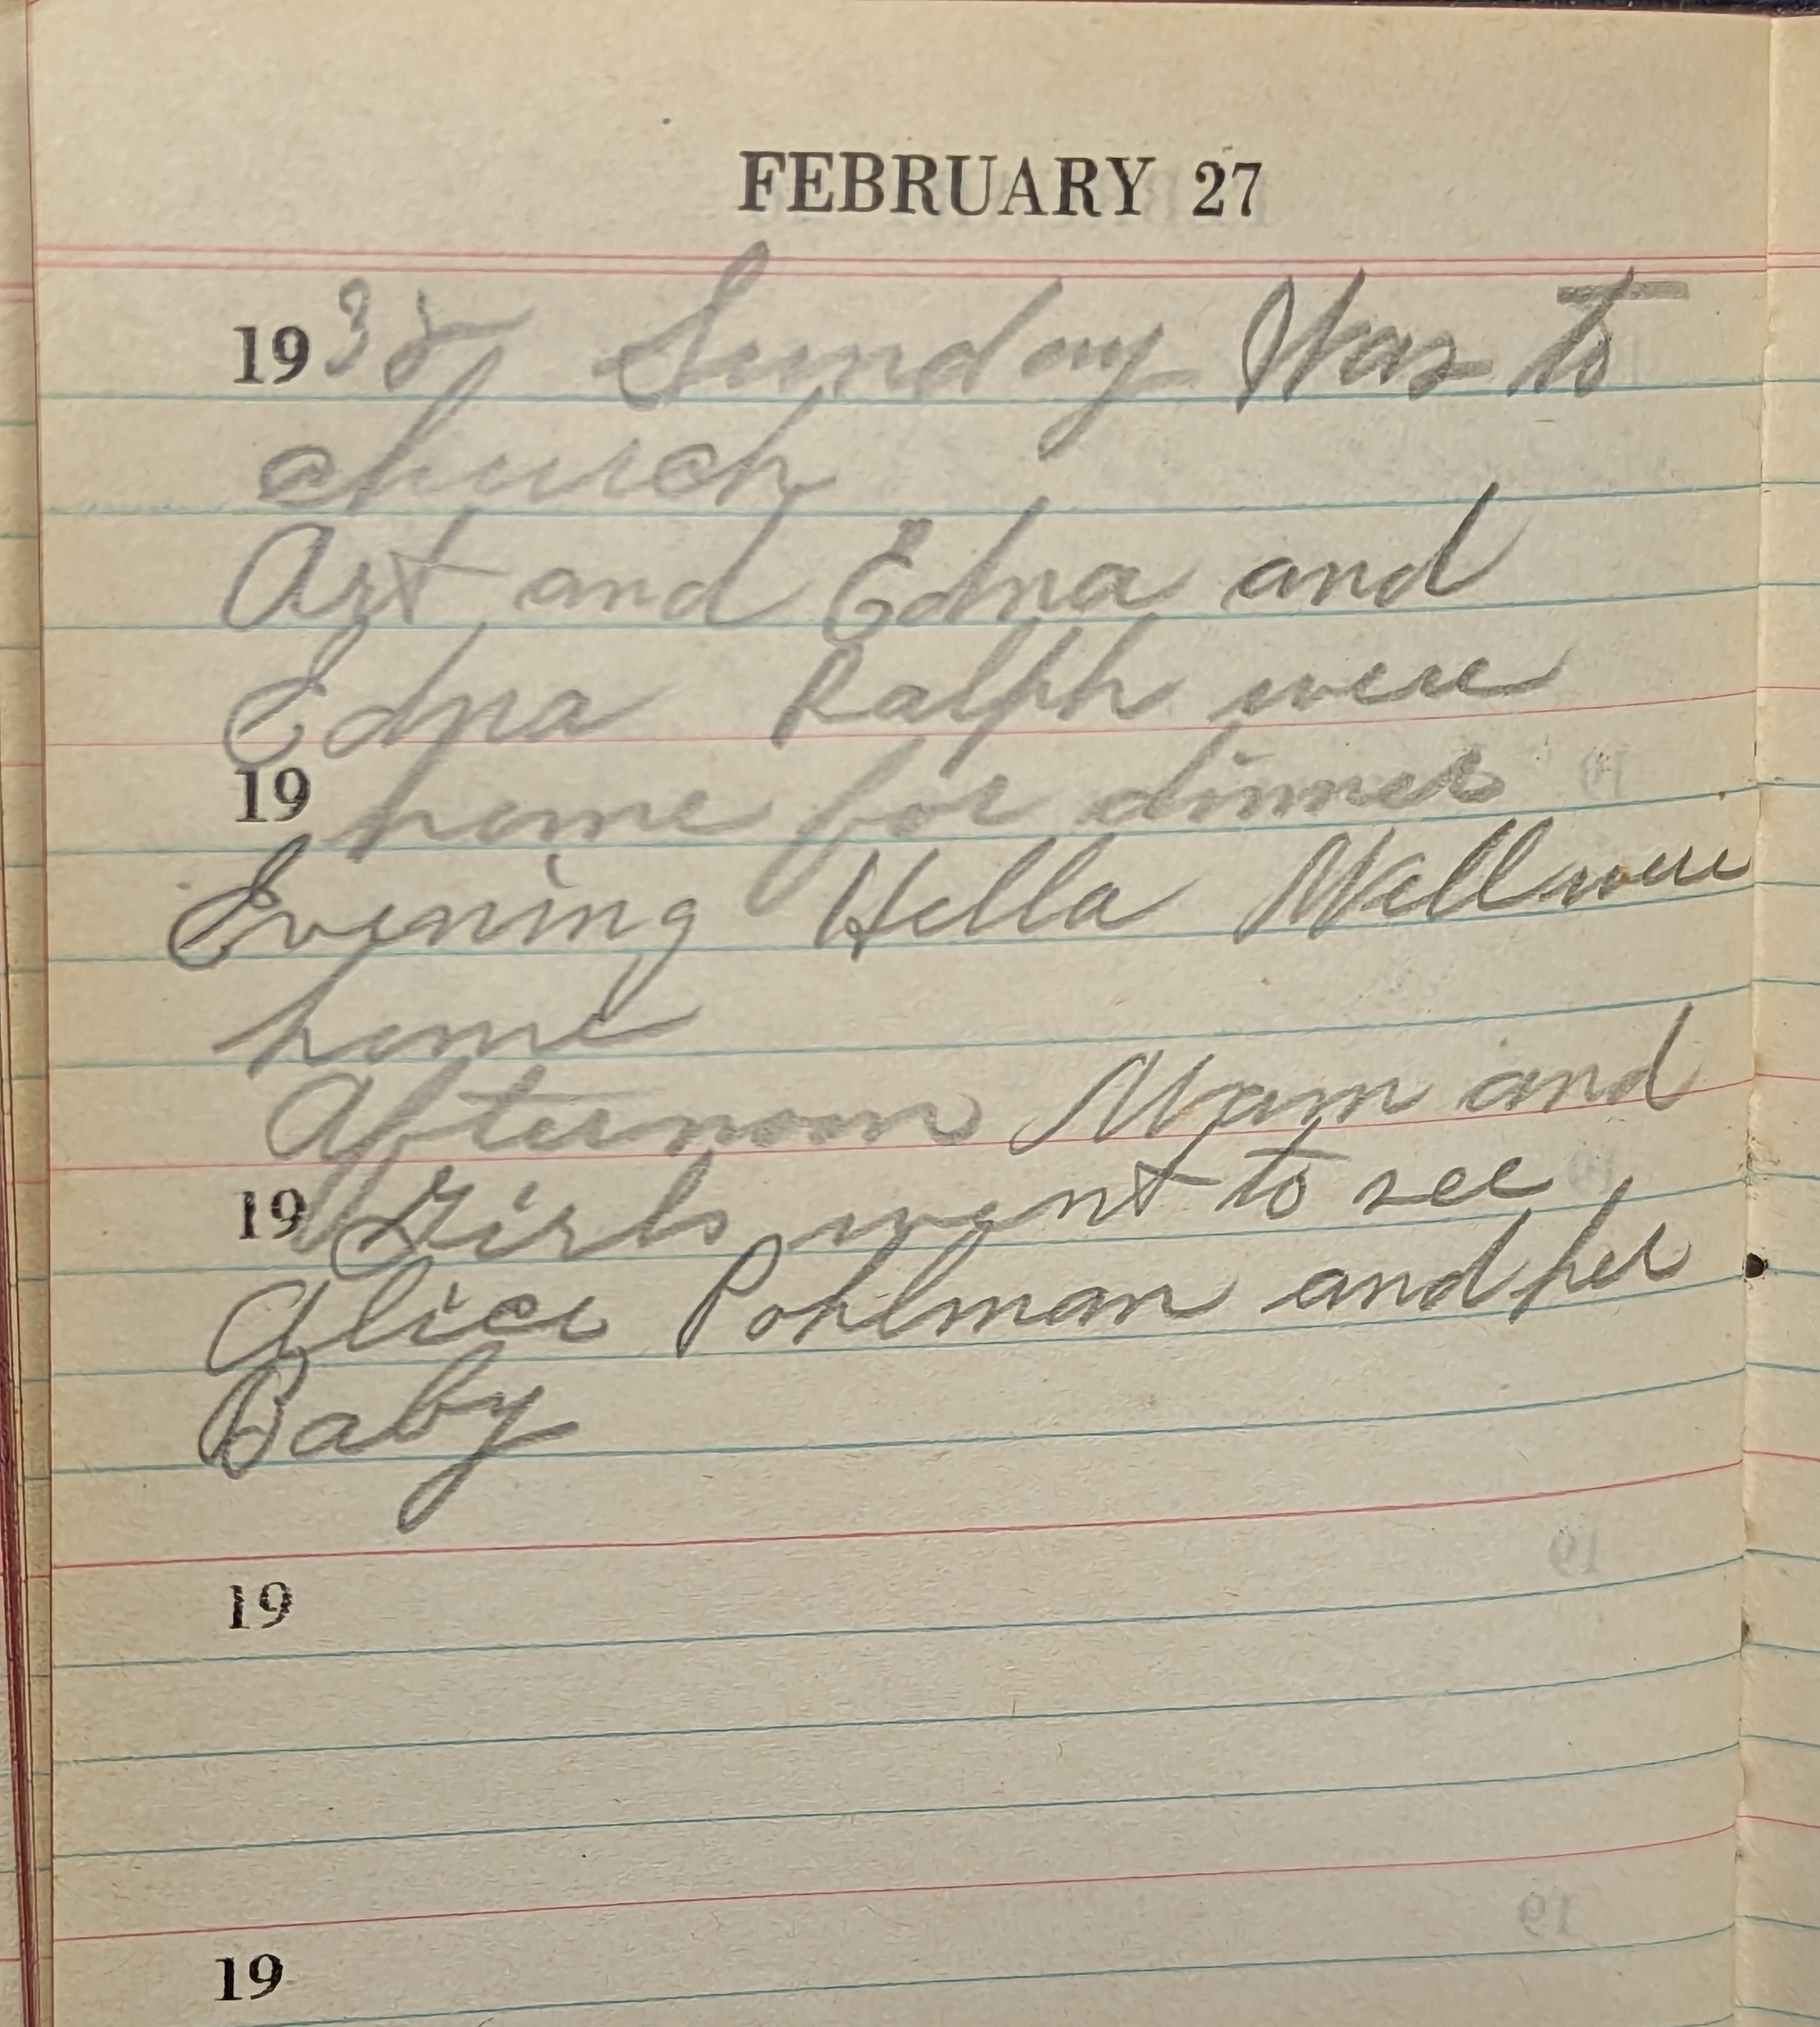 FEBRUARY 27
1938 Sunday Was to
church
Art and Edna and
Edna Ralph were
19 home for dinner
Evening Hella Well were
home
Afternoon Mam and
19 Girls went to see
Alice Pohlman and her
Baby
19
19